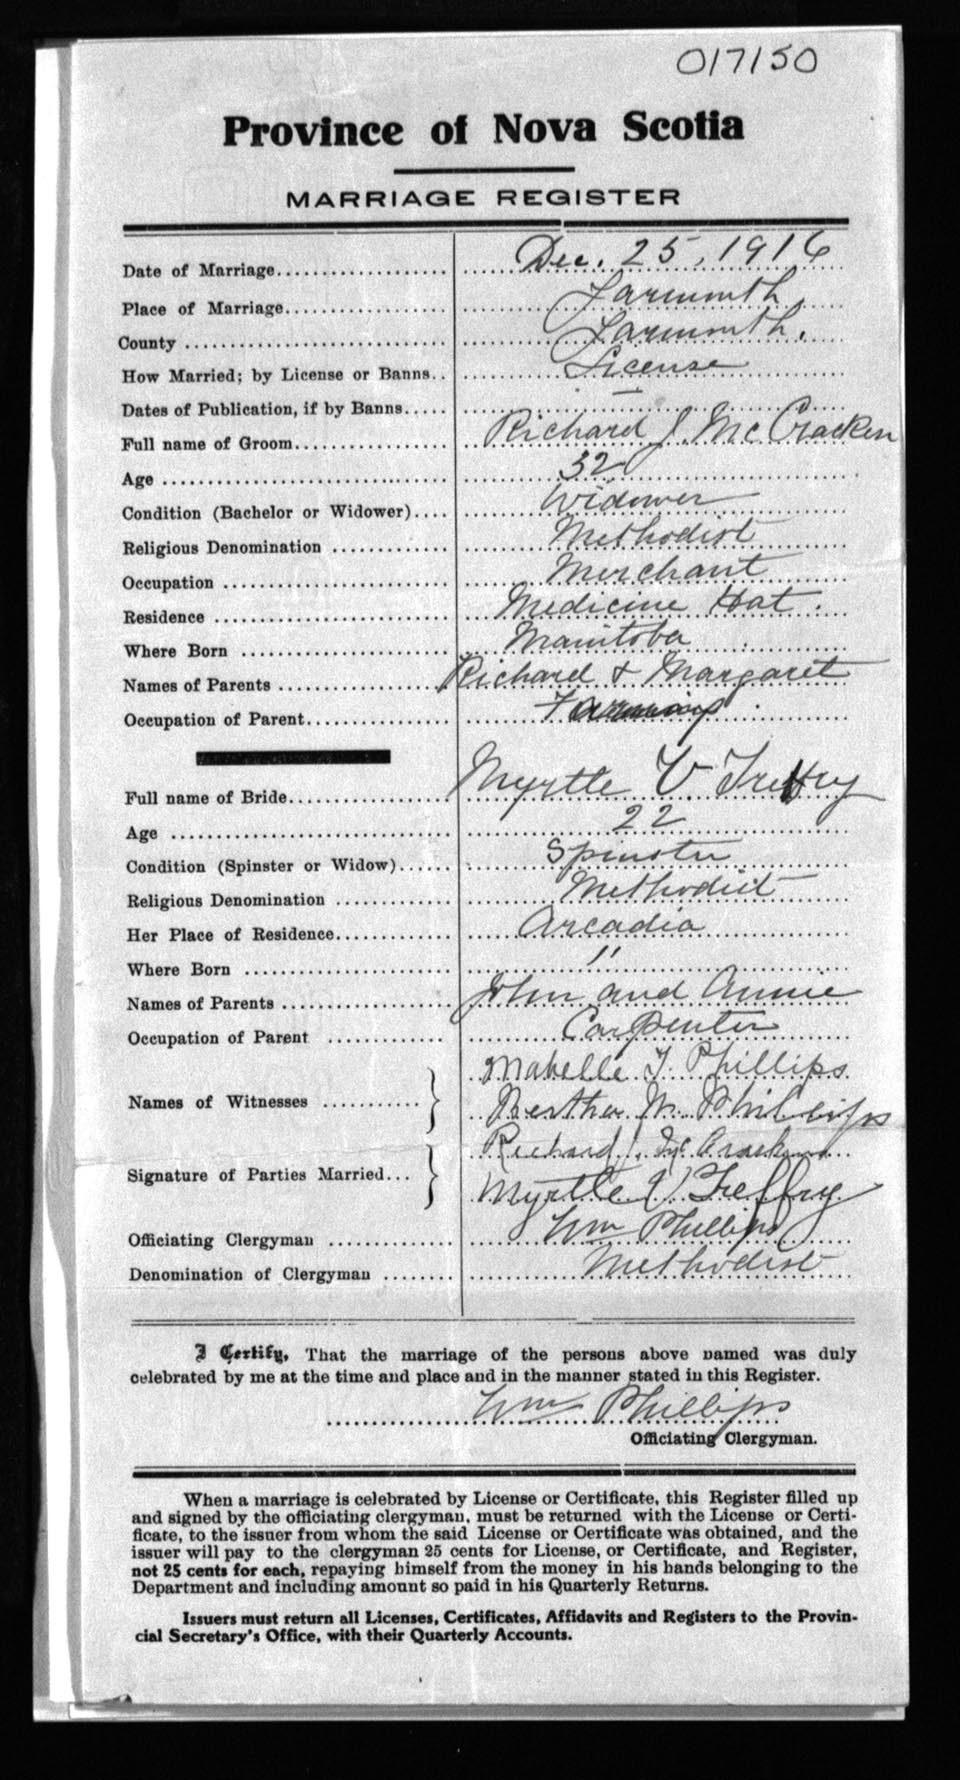 017150
Province of Nova Scotia
MARRIAGE REGISTER
Date of Marriage Dec. 25, 1916
Place of Marriage Yarmouth,
County Yarmouth.
How Married; by License or Banns License
Dates of Publication, if by Banns —
Full name of Groom Richard J. McCracken
Age 32
Condition (Bachelor or Widower) Widower
Religious Denomination Methodist
Occupation Merchant
Residence Medicine Hat.
Where Born Manitoba
Names of Parents Richard & Margaret
Occupation of Parent Farming
Full name of Bride Myrtle V Treffry
Age 22
Condition (Spinster or Widow) Spinster
Religious Denomination Methodist
Her Place of Residence Arcadia
Where Born "
Names of Parents John and Annie
Occupation of Parent Carpenter
Mabelle T. Phillips
Names of Witnesses
Bertha M. Phillips
Richard J. McCracken
Signature of Parties Married
Myrtle V Treffry
Officiating Clergyman Wm Phillips
Denomination of Clergyman Methodist
I Certify, That the marriage of the persons above named was duly
celebrated by me at the time and place and in the manner stated in this Register.
Wm Phillips
Officiating Clergyman.
When a marriage is celebrated by License or Certificate, this Register filled up
and signed by the officiating clergyman, must be returned with the License or Certi-
ficate, to the issuer from whom the said License or Certificate was obtained, and the
issuer will pay to the clergyman 25 cents for License, or Certificate, and Register,
not 25 cents for each, repaying himself from the money in his hands belonging to the
Department and including amount so paid in his Quarterly Returns.
Issuers must return all Licenses, Certificates, Affidavits and Registers to the Provin-
cial Secretary's Office, with their Quarterly Accounts.